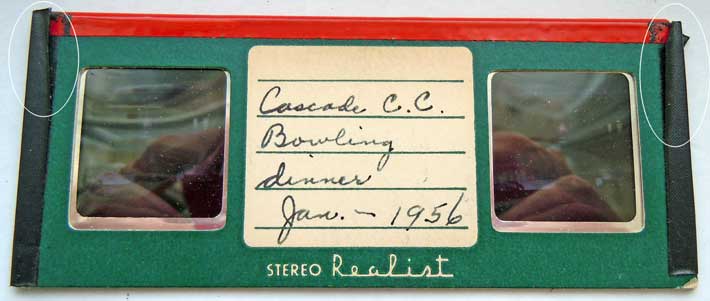 Cascade C.C.
Bowling
dinner
Jan. - 1956
STEREO Realist